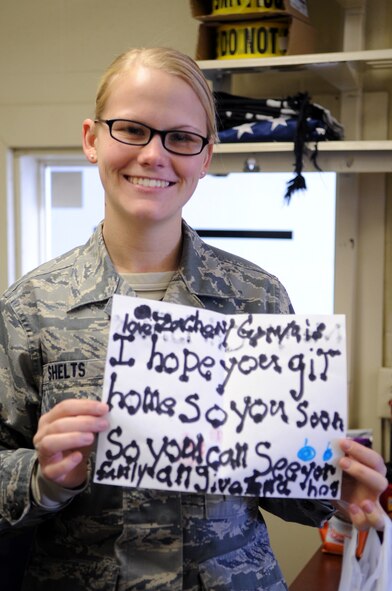 DO NOT
SHELTS
love Zachery
I hope you giT
home so you soon
So you can See your
family an give and hog